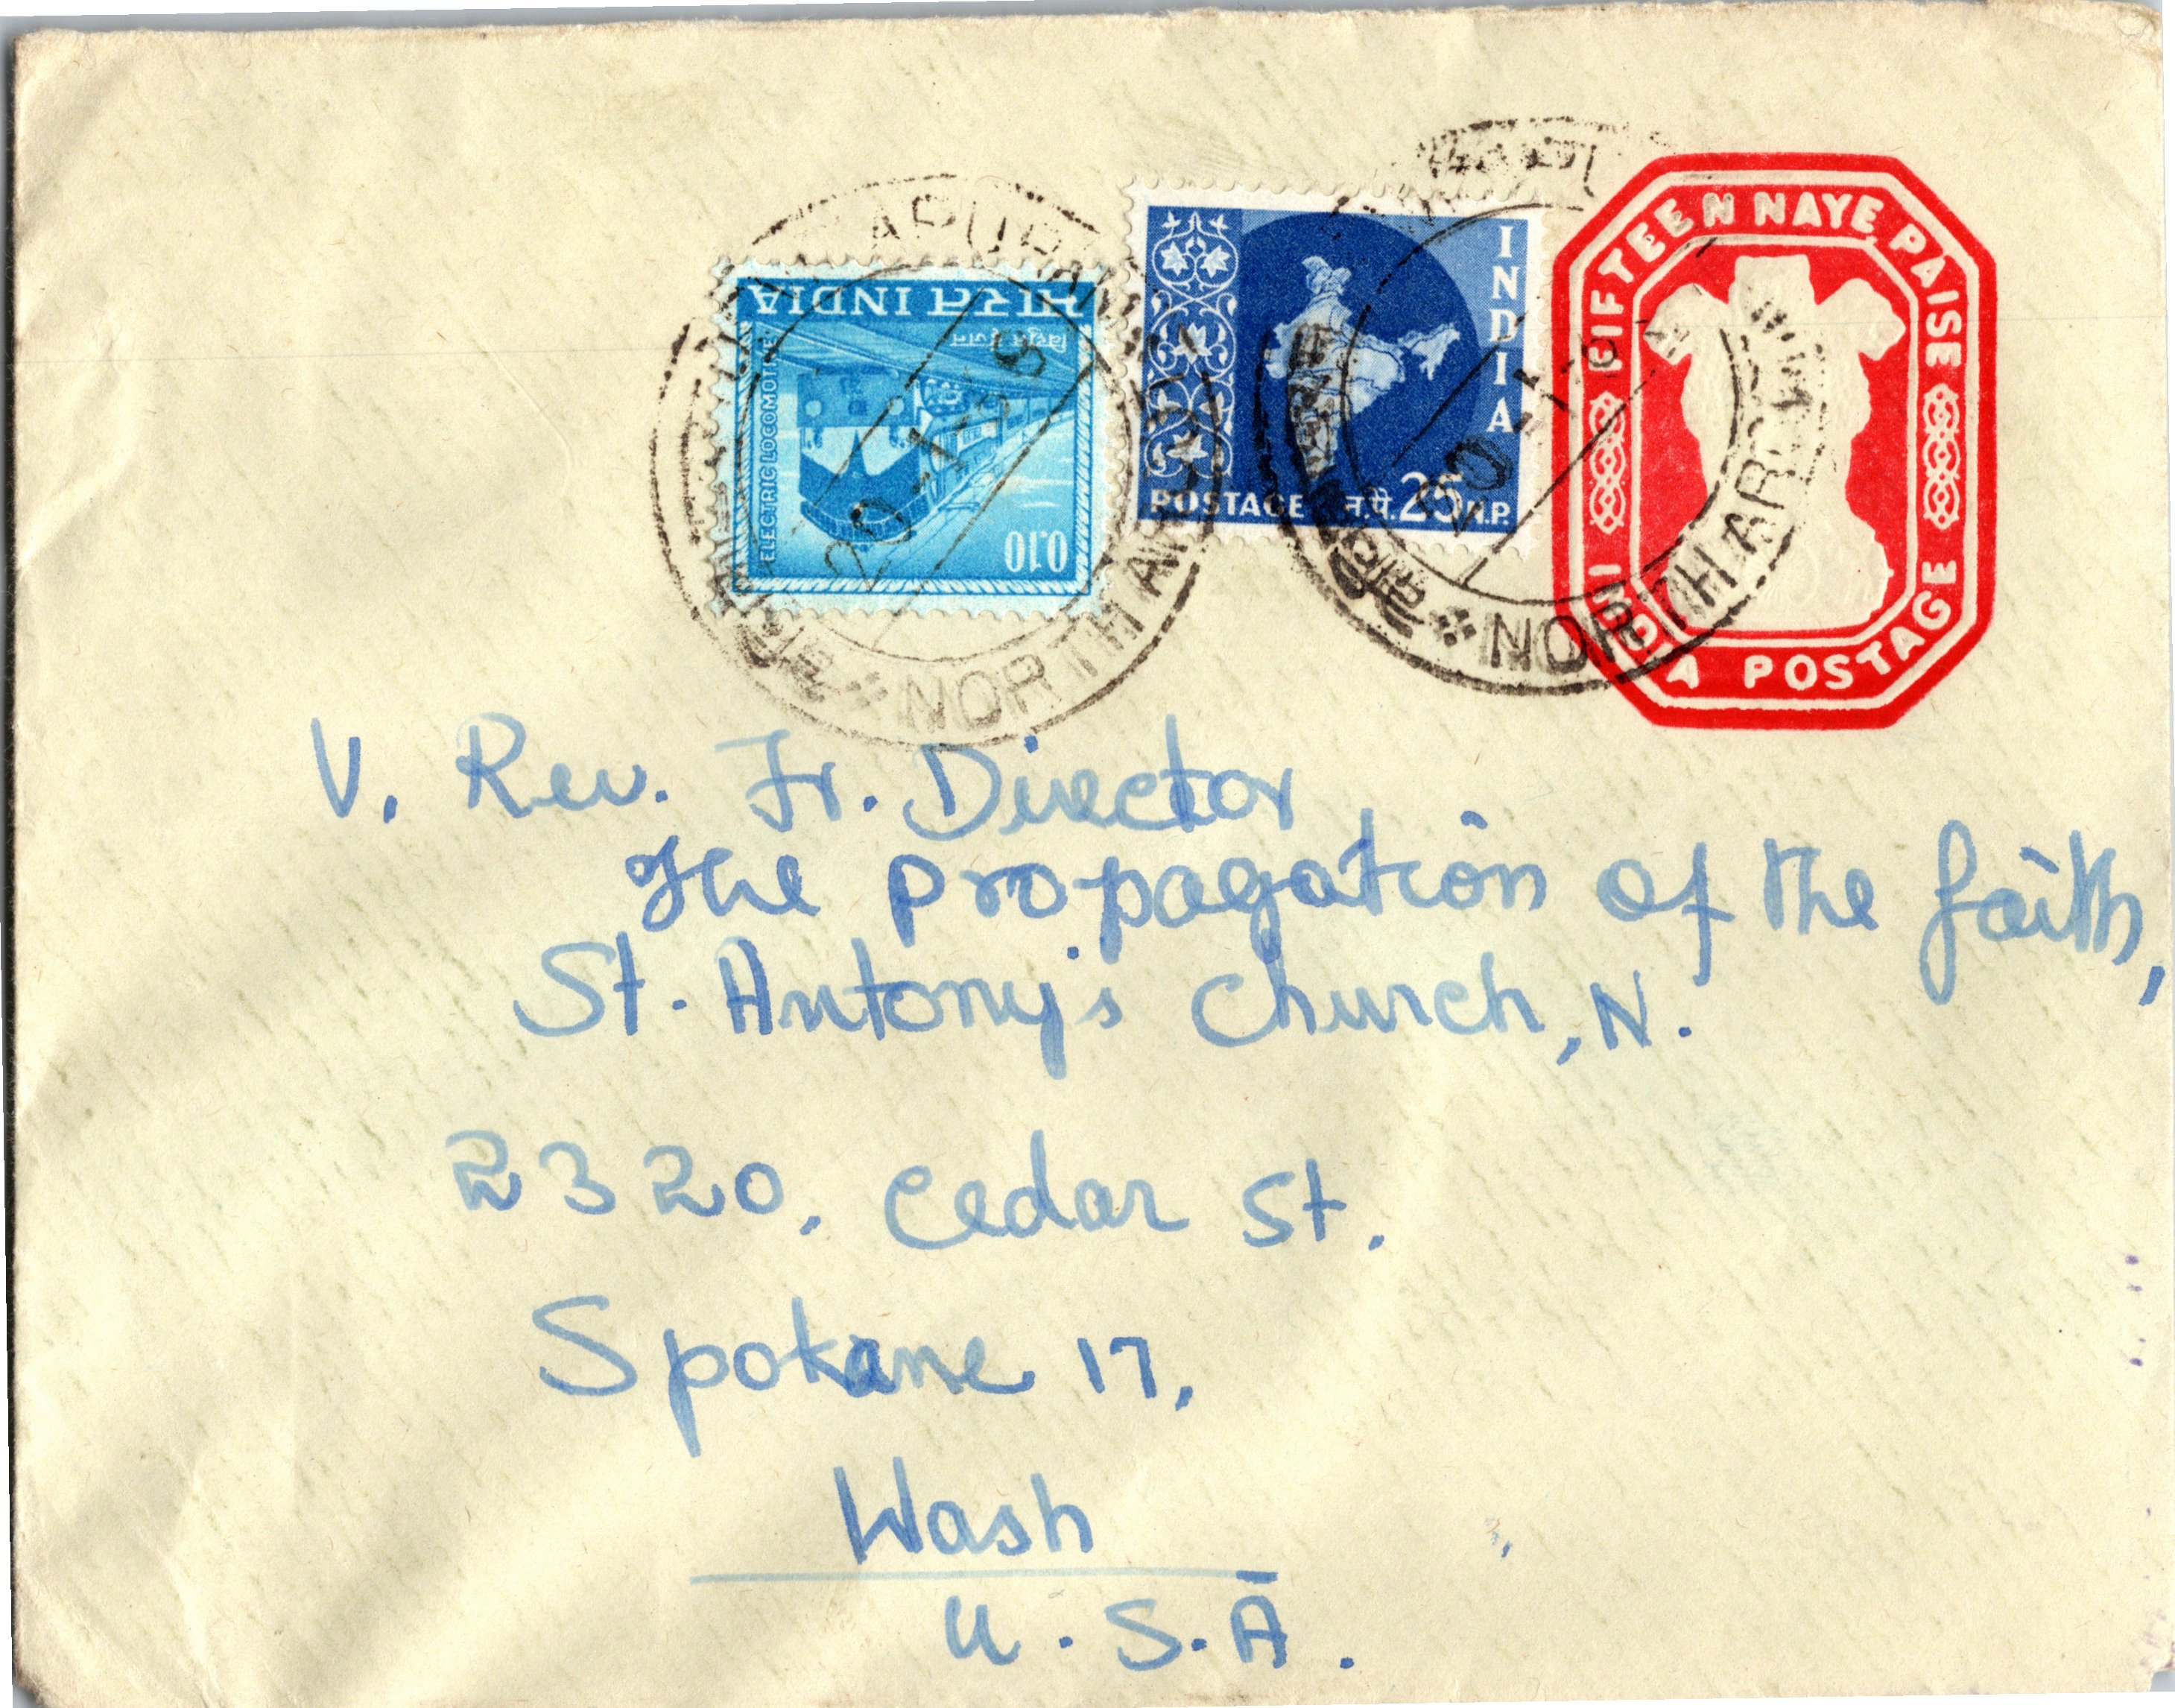 भारत INDIA
विद्युत इंजन
ELECTRIC LOCOMOTIVE
0.10
INDIA
POSTAGE न.पै. 25 N.P.
FIFTEEN NAYE PAISE
INDIA POSTAGE
20-1-6
NORTH
20-1-6
NORTH ARCOT
V. Rev. Fr. Director
The propagation of the faith,
St. Antony's Church, N.
2320, Cedar St.
Spokane 17,
Wash
U.S.A.